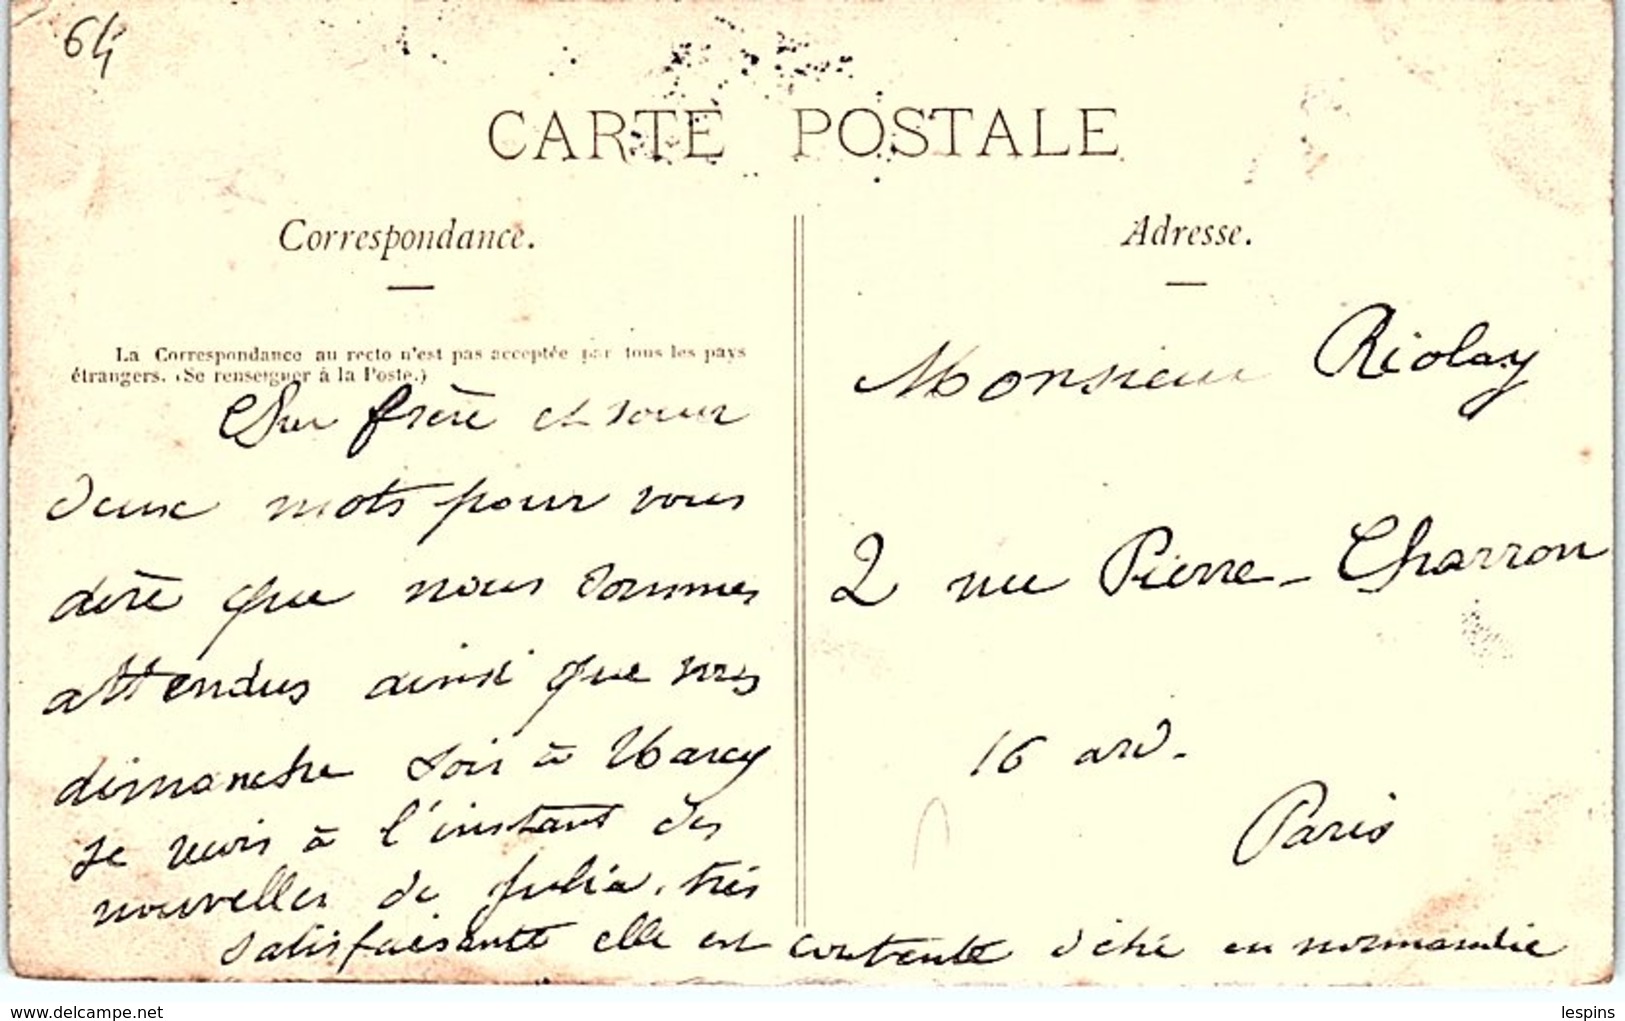 64
CARTE POSTALE
Correspondance.
La Correspondance au recto n'est pas acceptée par tous les pays
étrangers. (Se renseigner à la Poste.)
Cher frère et soeur
deux mots pour vous
dire que nous sommes
attendus ainsi que vous
dimanche soir à Marcy
je reçois à l'instant des
nouvelles de Julia. très
satisfaisante elle est contente d'été en normandie
Adresse.
Monsieur Riolay
2 rue Pierre-Charron
16 ard.
Paris
delcampe.net
lespins